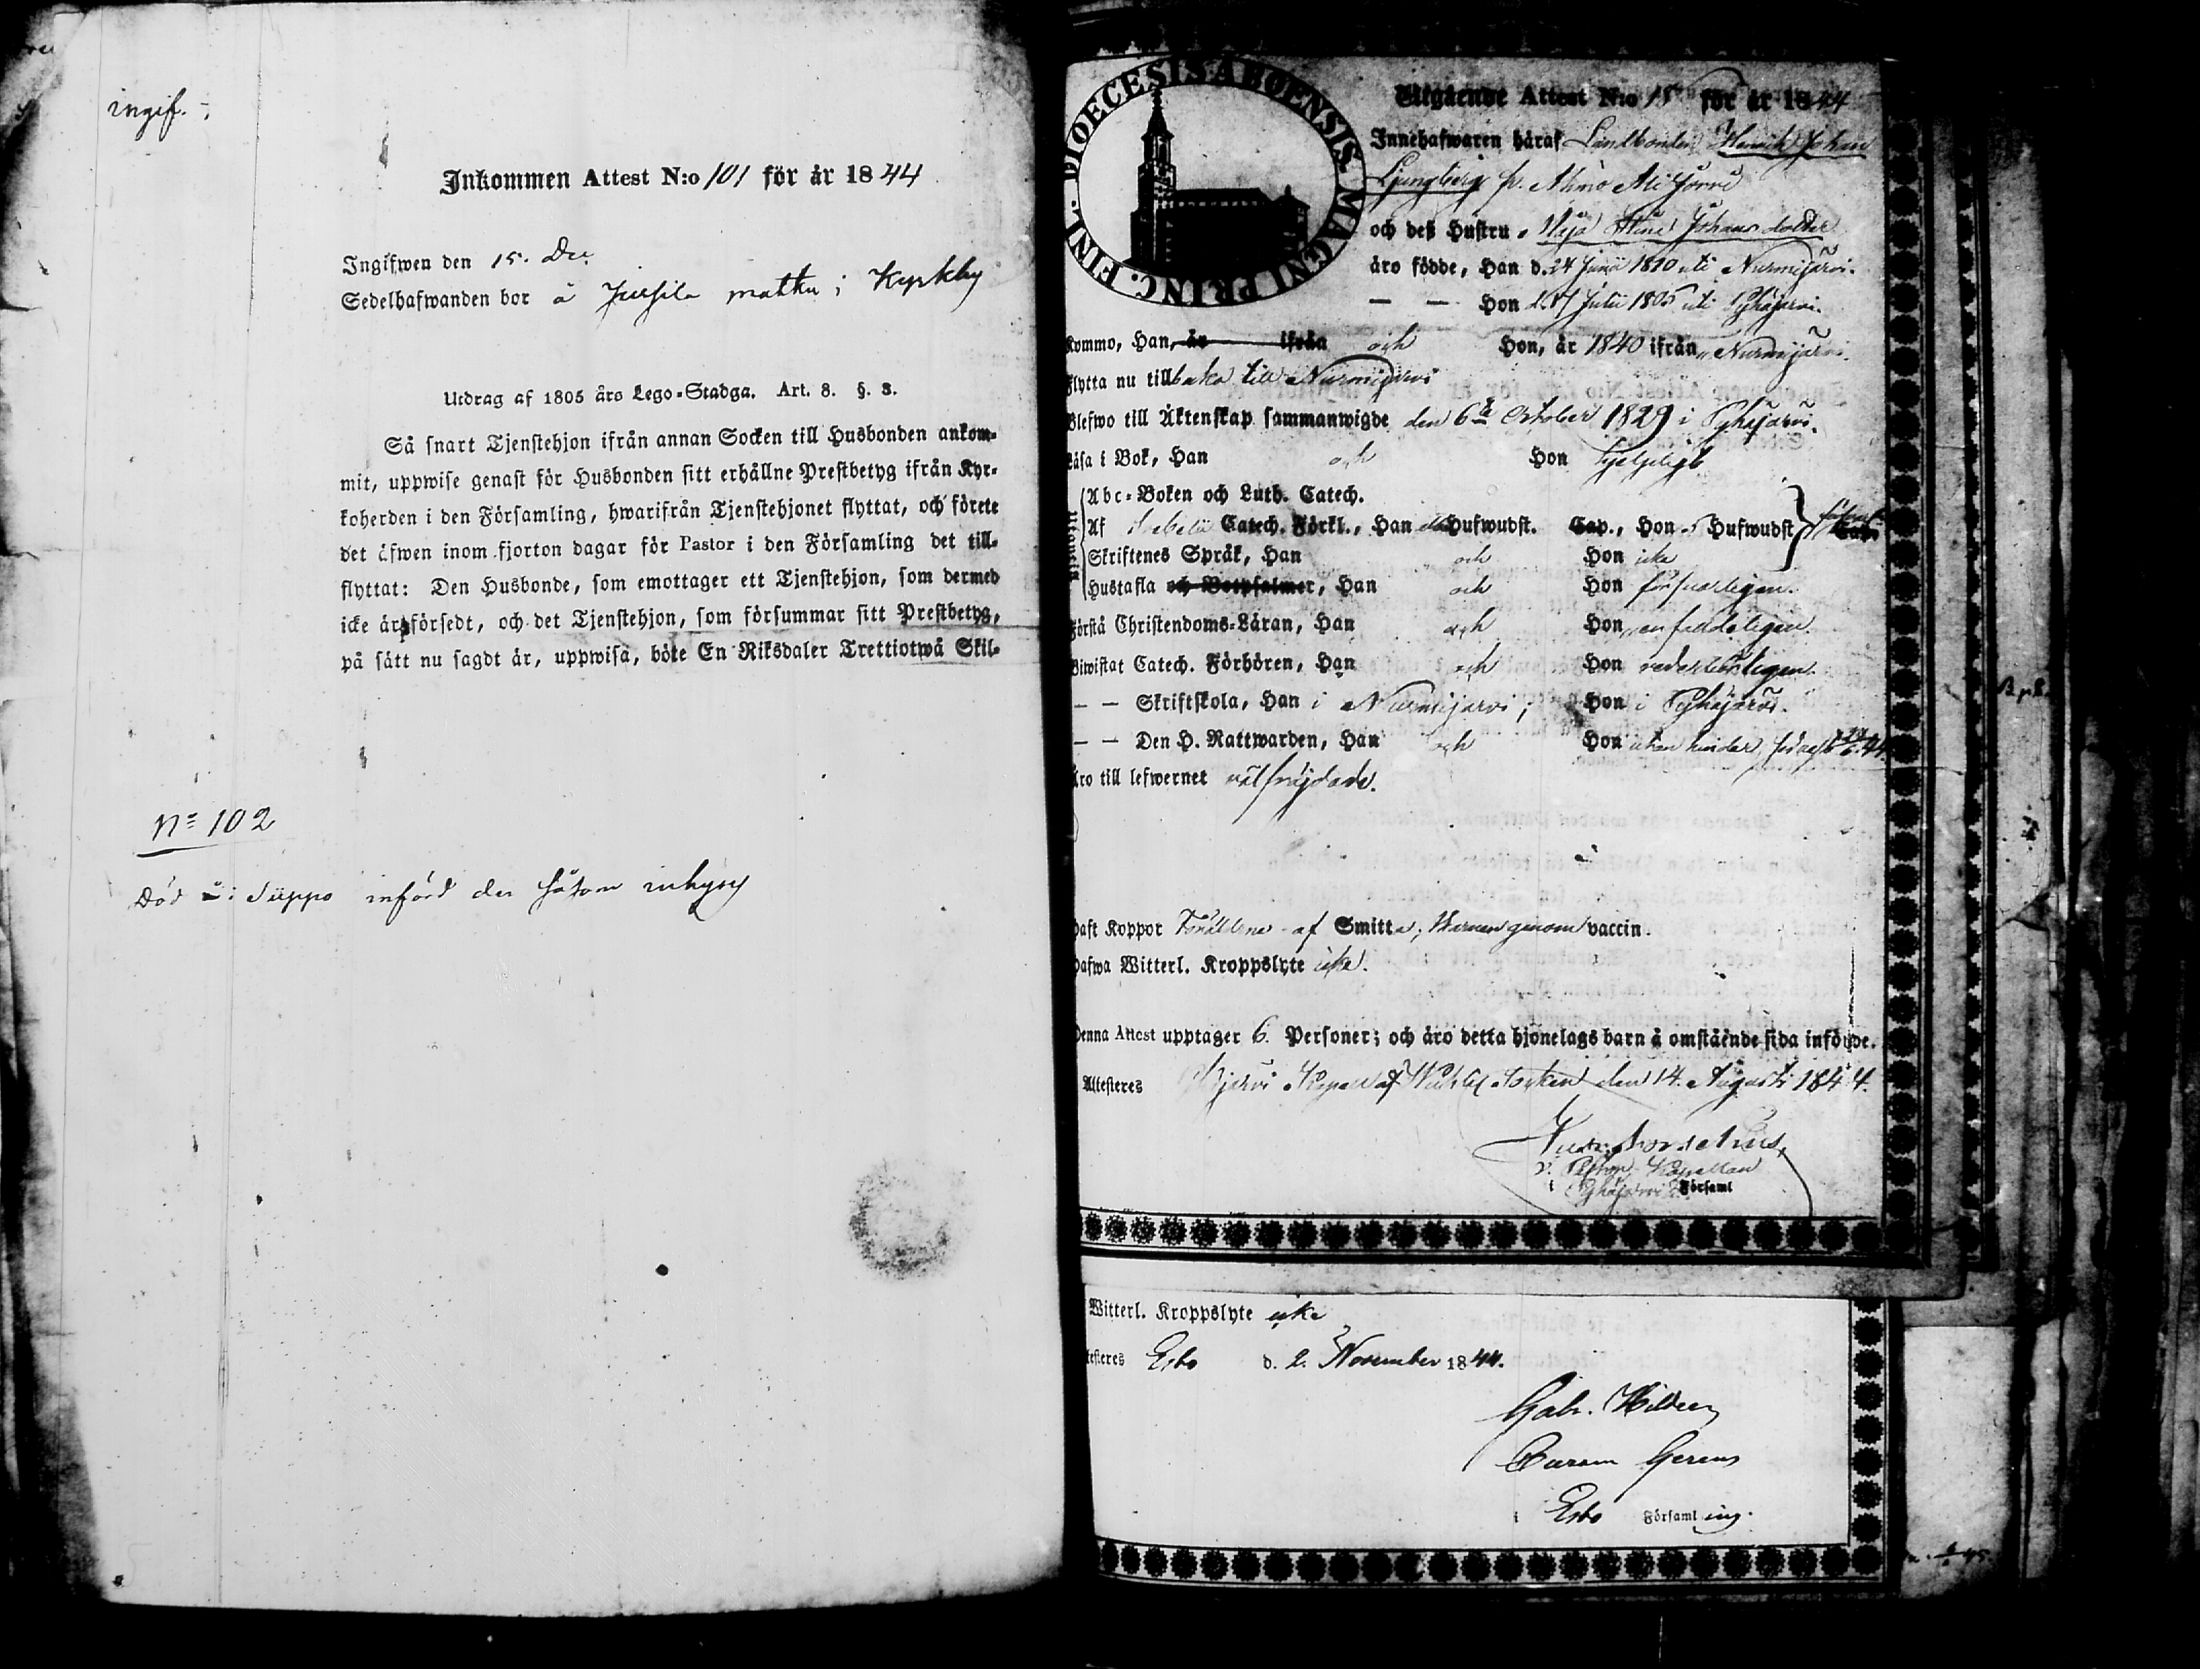 ingif.
Inkommen Attest N:o 101 för år 1844
Ingifwen den 15. Dec
Sedelhafwanden bor å Jussila i Kyrkby
Utdrag af 1805 års Lego-Stadga. Art. 8. §. 3.
Så snart Tjenstehjon ifrån annan Socken till Husbonden ankom-
mit, uppwise genast för Husbonden sitt erhållne Prestbetyg ifrån Kyr-
koherden i den Församling, hwarifrån Tjenstehjonet flyttat, och förete
det äfwen inom fjorton dagar för Pastor i den Församling det till-
flyttat: Den Husbonde, som emottager ett Tjenstehjon, som dermed
icke är försedt, och det Tjenstehjon, som försummar sitt Prestbetyg,
på sätt nu sagdt är, uppwisa, böte En Riksdaler Trettiotwå Skil-
No 102
Död i Siippo införd der såsom inhyses
FINL. DIOECESIS ABOENSIS. MAGNI PRINC.
Utgående Attest N:o 15 för år 1844
Innehafwaren häraf Landbonden Henrik Johan
Ljungberg fr.
och deß Hustru Maja Stina Johansdotter
äro födde, Han d. 24 Junii 1810 uti Nurmijärvi.
— — Hon d. Julii 1805 uti Pyhäjärvi.
Kommo, Han, år ifrån och Hon, år 1840 ifrån Nurmijärvi.
Flytta nu tillbaka till Nurmijärvi
Blefwo till Äktenskap sammanwigde den 6te October 1829 i Pyhäjärvi.
Läsa i Bok, Han och Hon hjelpligt
Abc-Boken och Luth. Catech.
Af Catech. Förkl., Han Hufwudst. Cap., Hon 5 Hufwudst Cap.
Skriftenes Språk, Han och Hon icke
Hustafla och Botpsalmer, Han och Hon försvarligen.
Förstå Christendoms-Läran, Han och Hon enfaldeligen.
Biwistat Catech. Förhören, Han och Hon
— — Skriftskola, Han i Nurmijärvi; Hon i Pyhäjärvi.
— — Den H. Nattwarden, Han och Hon utan hinder
Äro till lefwernet välfrejdade.
Haft Koppor Föräldrne af Smitta; Barnen genom vaccin.
Hafwa Witterl. Kroppslyte icke.
Denna Attest upptager 6. Personer; och äro detta hjonelags barn å omstående sida införde.
Attesteres Socken den 14. Augusti 1844.
V. Pastor Kapellan
i Pyhäjärvi Församl
Witterl. Kroppslyte icke
testeres Esbo d. 2. November 1844.
Gabr.
Curam Gerens
i Esbo Församling.